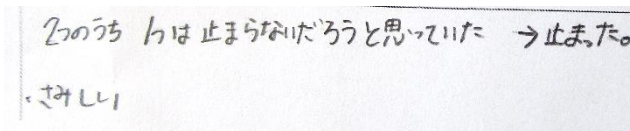 2つのうち 1つは止まらないだろうと思っていた →止まった。
・さみしい